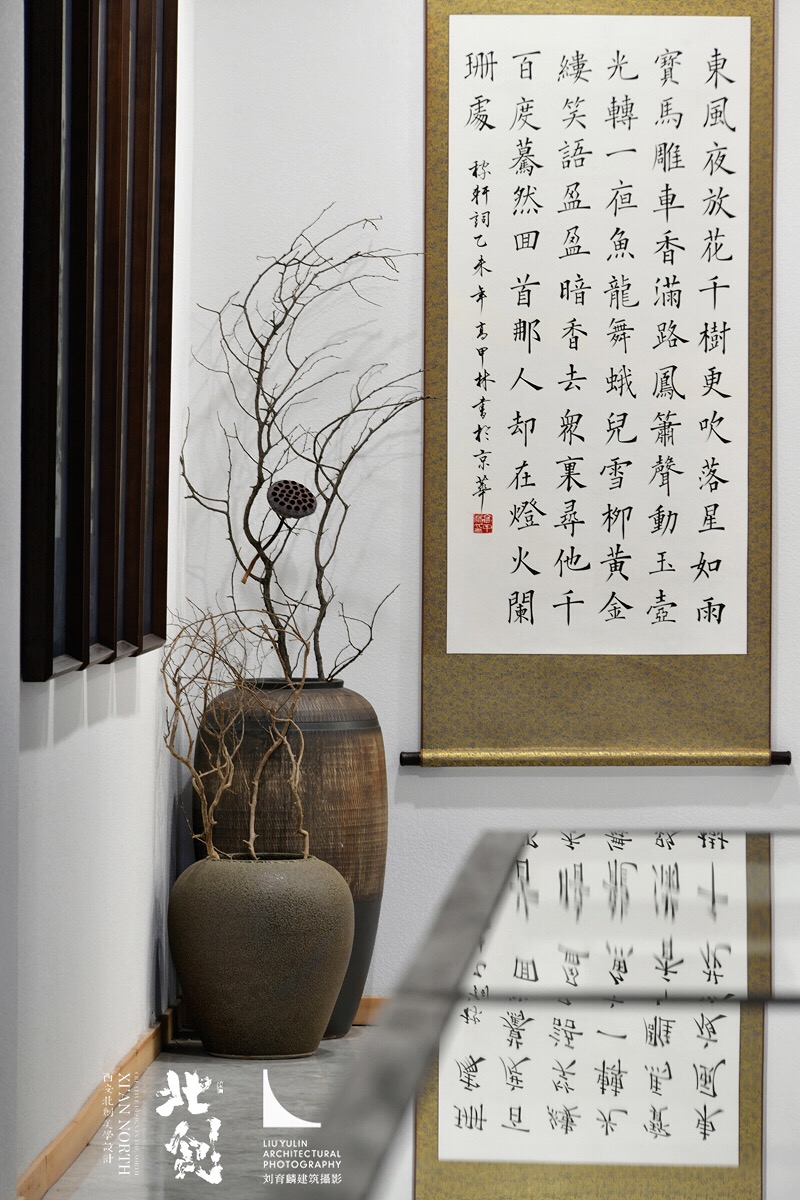 東風夜放花千樹更吹落星如雨
寶馬雕車香滿路鳳簫聲動玉壺
光轉一亱魚龍舞蛾兒雪柳黃金
縷笑語盈盈暗香去衆裏尋他千
百度驀然囬首那人却在燈火闌
珊處
稼軒詞乙未年高甲林書於京華
西安北創美學設計
XI'AN NORTH
北創
LIU YULIN
ARCHITECTURAL
PHOTOGRAPHY
刘育麟建筑攝影